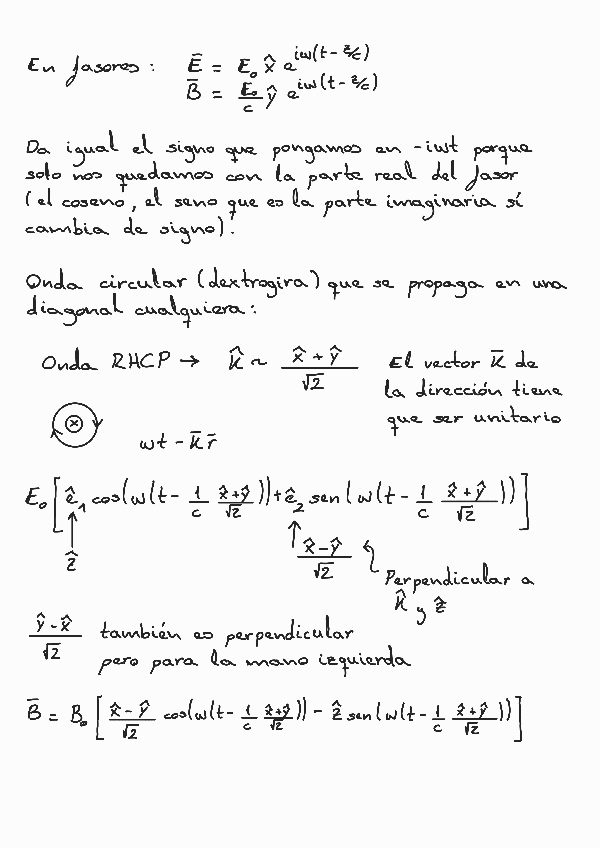 En fasores: Ē = E₀ x̂ e^{iw(t - z/c)}
B̄ = E₀/c ŷ e^{iw(t - z/c)}
Da igual el signo que pongamos en -iwt porque
solo nos quedamos con la parte real del fasor
(el coseno, el seno que es la parte imaginaria sí
cambia de signo).
Onda circular (dextrogira) que se propaga en una
diagonal cualquiera:
Onda RHCP → k̂ ~ (x̂ + ŷ)/√2
El vector k̄ de
la dirección tiene
que ser unitario
wt - k̄ r̄
E₀ [ ê₁ cos(w(t - 1/c (x̂+ŷ)/√2)) + ê₂ sen(w(t - 1/c (x̂+ŷ)/√2)) ]
ẑ
(x̂ - ŷ)/√2
Perpendicular a
k̂ y ẑ
(ŷ - x̂)/√2 también es perpendicular
pero para la mano izquierda
B̄ = B₀ [ (x̂ - ŷ)/√2 cos(w(t - 1/c (x̂+ŷ)/√2)) - ẑ sen(w(t - 1/c (x̂+ŷ)/√2)) ]